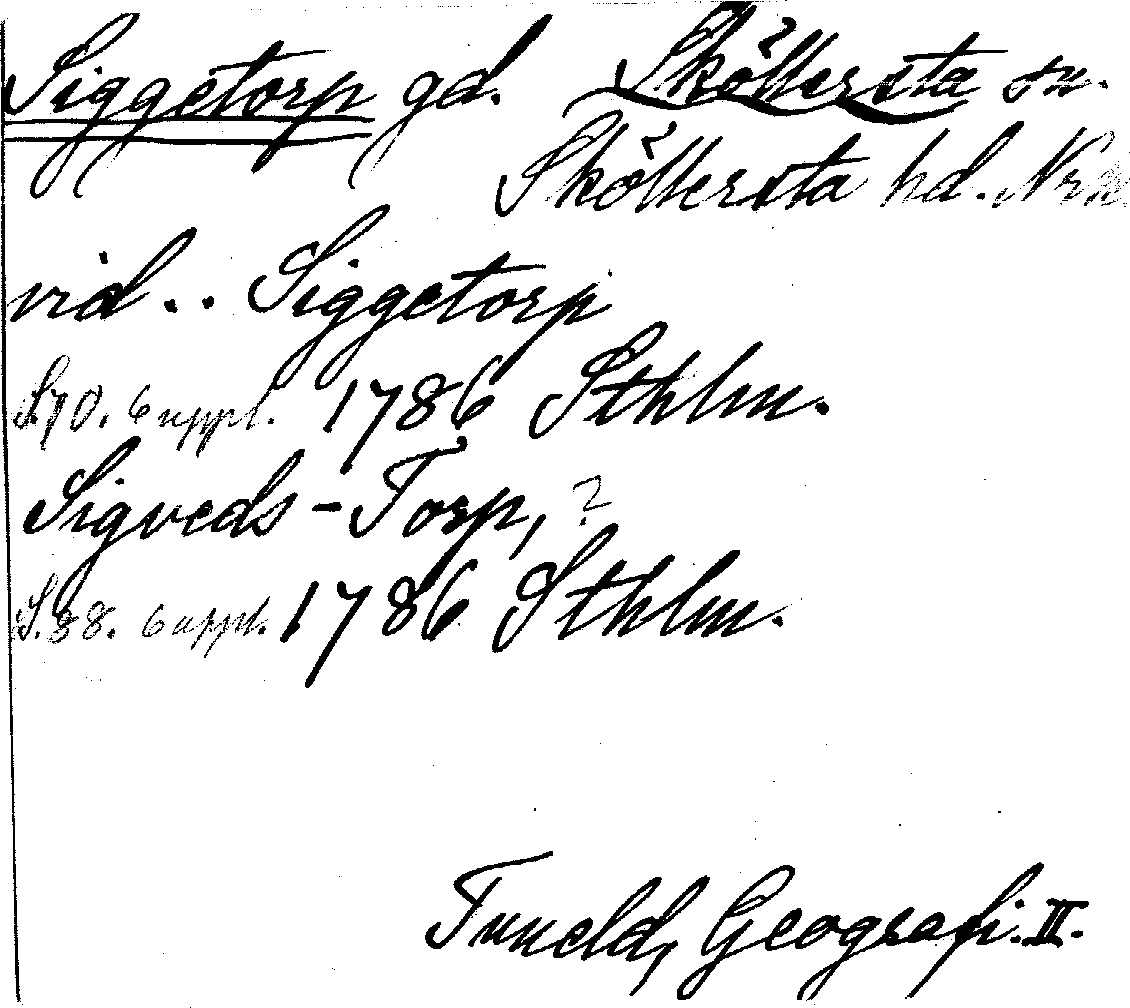 Siggetorp gd. Sköllersta sn.
Sköllersta hd. Nrk
vid.. Siggetorp
S.70. 6 uppl. 1786 Sthlm.
Sigveds-Torp, ?
S.88. 6 uppl. 1786 Sthlm.
Tuneld, Geografi. II.